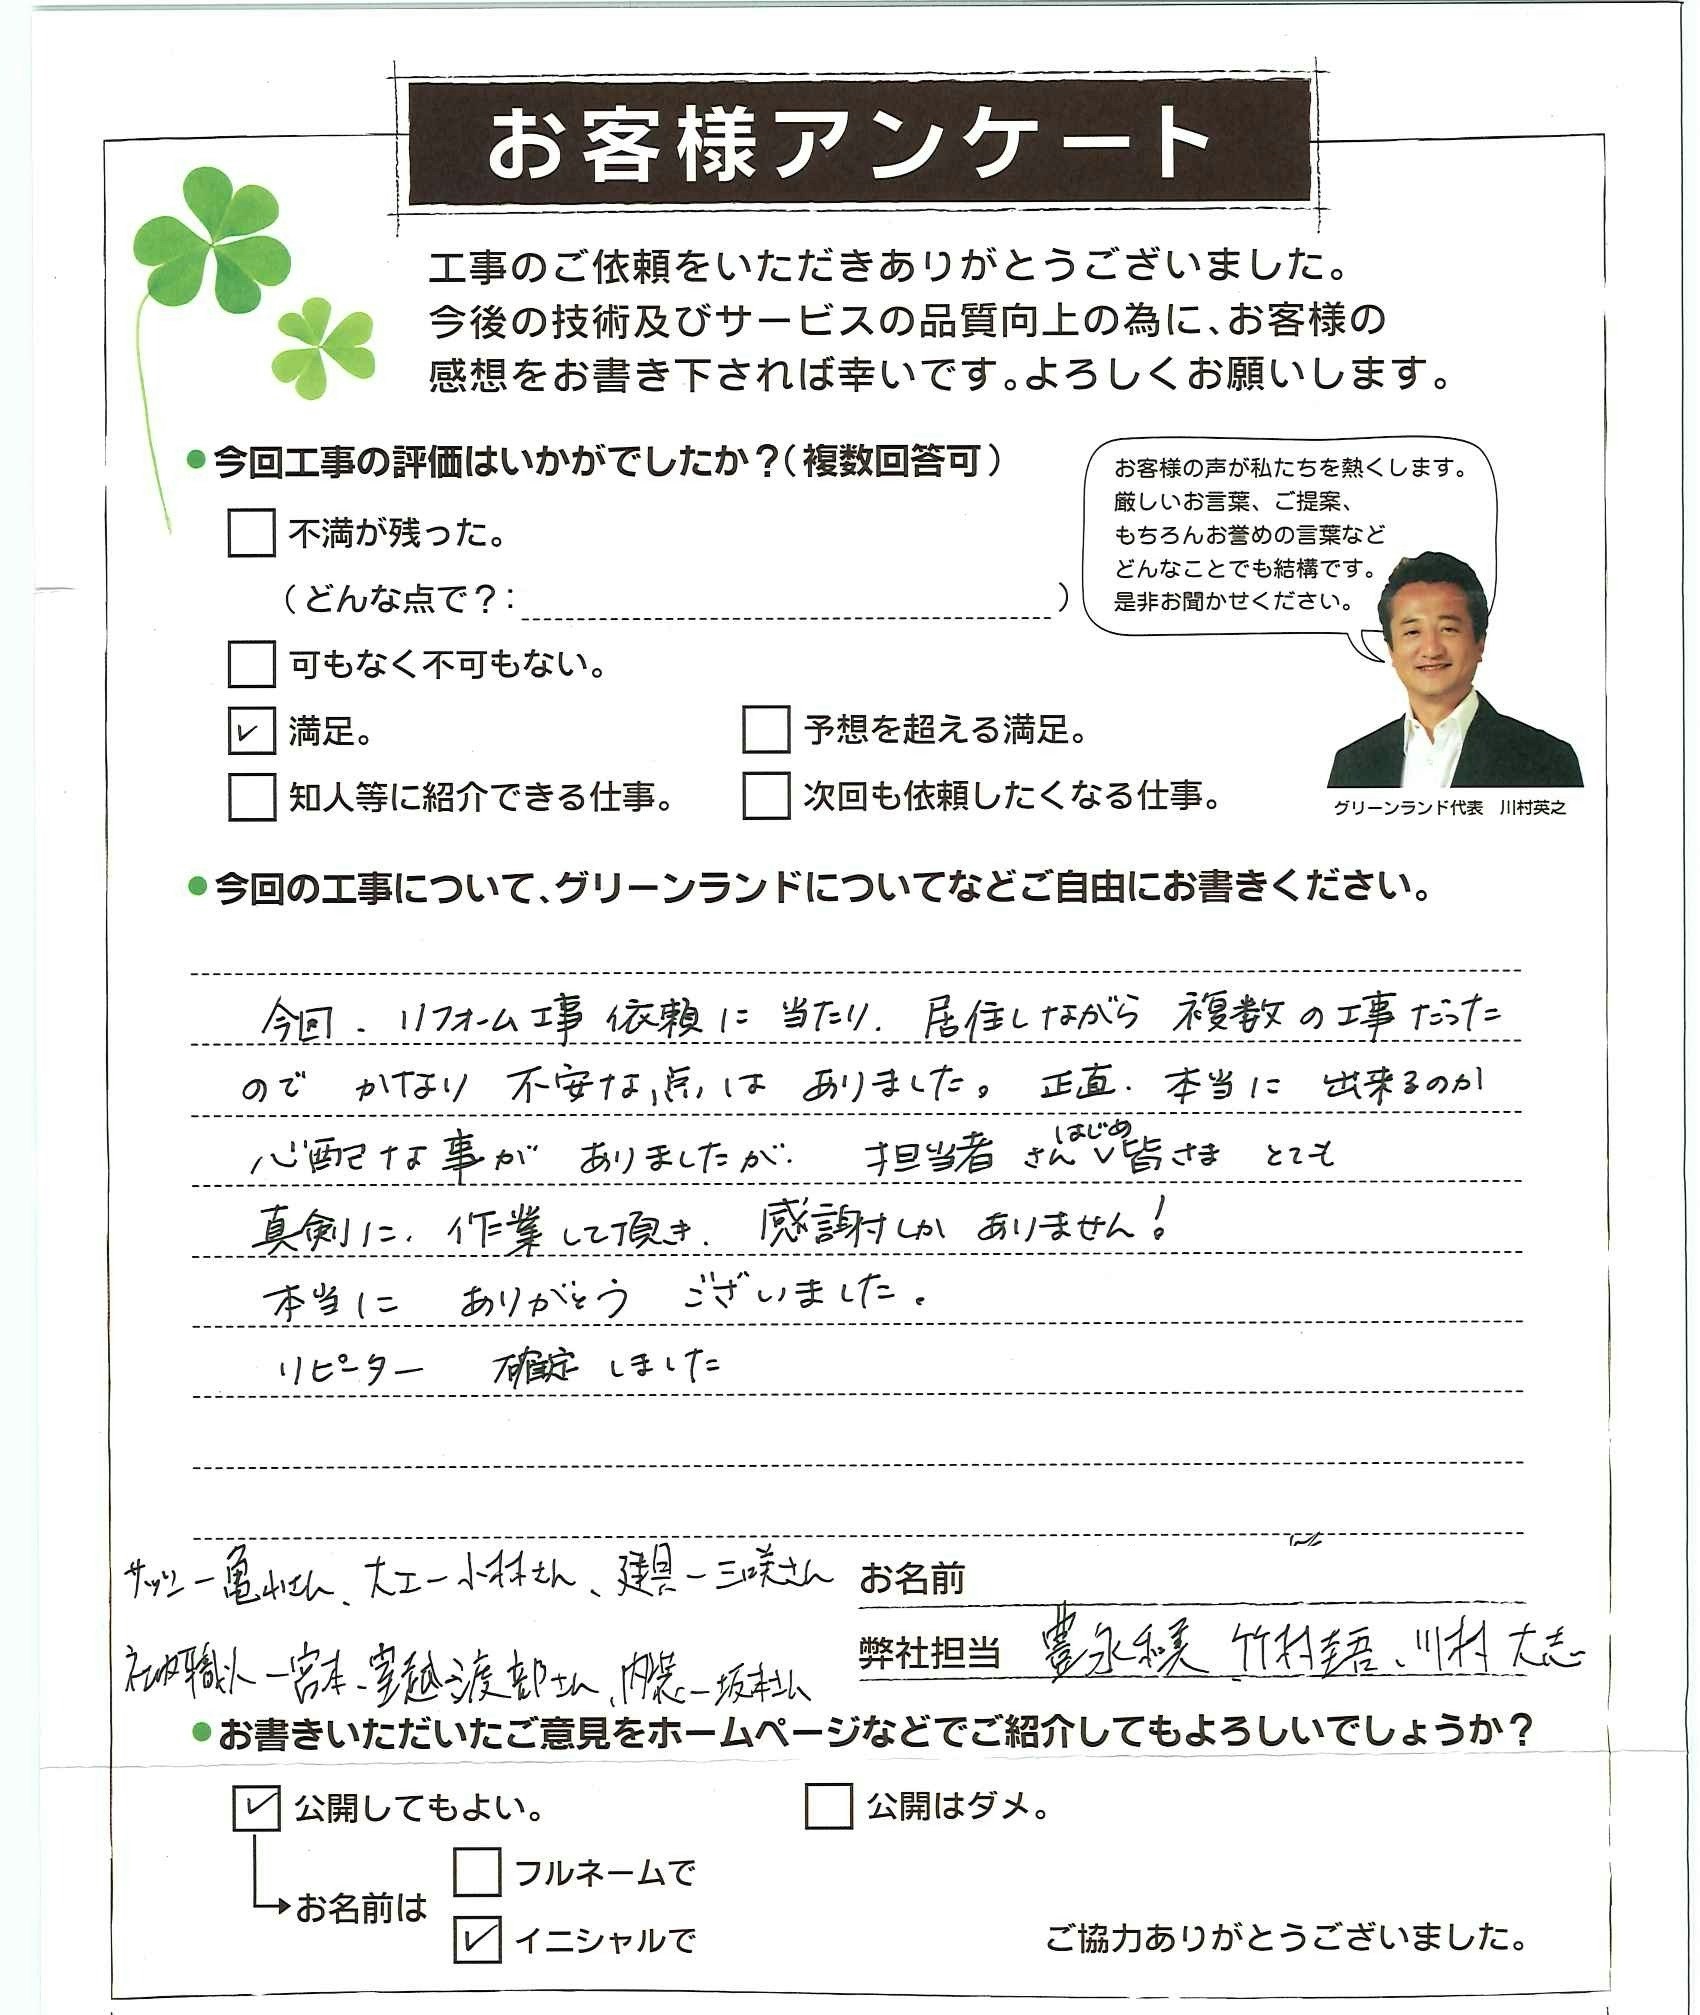 お客様アンケート
工事のご依頼をいただきありがとうございました。
今後の技術及びサービスの品質向上の為に、お客様の
感想をお書き下されば幸いです。よろしくお願いします。
●今回工事の評価はいかがでしたか？（複数回答可）
不満が残った。
（どんな点で？：　）
可もなく不可もない。
満足。
予想を超える満足。
知人等に紹介できる仕事。
次回も依頼したくなる仕事。
お客様の声が私たちを熱くします。
厳しいお言葉、ご提案、
もちろんお誉めの言葉など
どんなことでも結構です。
是非お聞かせください。
グリーンランド代表　川村英之
●今回の工事について、グリーンランドについてなどご自由にお書きください。
今回、リフォーム工事依頼に当たり、居住しながら複数の工事だった
のでかなり不安な点はありました。正直、本当に出来るのか
心配な事がありましたが、担当者さんはじめ皆さまとても
真剣に、作業して頂き、感謝しかありません！
本当にありがとうございました。
リピーター確定しました
サッシー亀山さん、大工ー小林さん、建具ー三咲さん
お名前
社内職人ー宮本、室越、渡部さん、内装ー坂本さん
弊社担当 豊永和美 竹村圭吾、川村大志
●お書きいただいたご意見をホームページなどでご紹介してもよろしいでしょうか？
公開してもよい。
公開はダメ。
お名前は
フルネームで
イニシャルで
ご協力ありがとうございました。